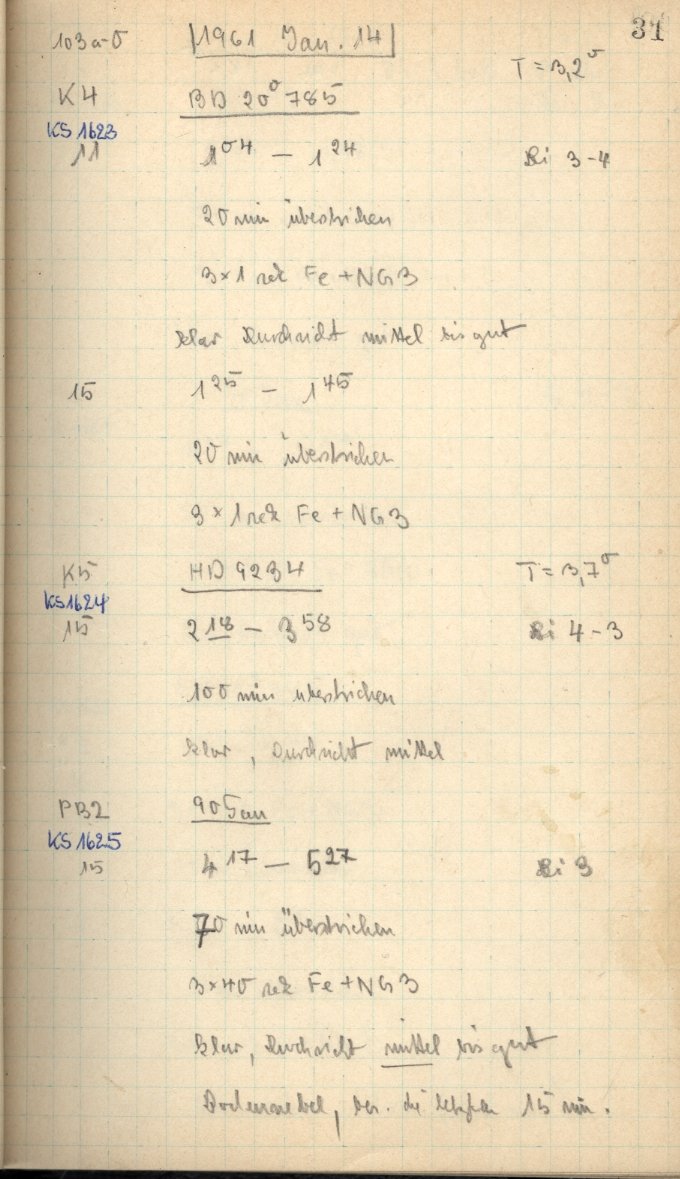 31
103a-0 1961 Jan. 14
T = 3,2°
K4 BD 20° 785
KS 1623
11 1 04 – 1 24 Ri 3-4
20 min überstrichen
3 × 1 sek Fe + NG3
klar Durchsicht mittel bis gut
15 1 25 – 1 45
20 min überstrichen
3 × 1 sek Fe + NG3
K5 HD 9234 T = 3,7°
KS1624
15 2 18 – 3 58 Ri 4-3
100 min überstrichen
klar, Durchsicht mittel
PB2 90 Tau
KS 1625
15 4 17 – 5 27 Ri 3
70 min überstrichen
3 × 40 sek Fe + NG3
klar, Durchsicht mittel bis gut
Bodennebel, bes. die letzten 15 min.